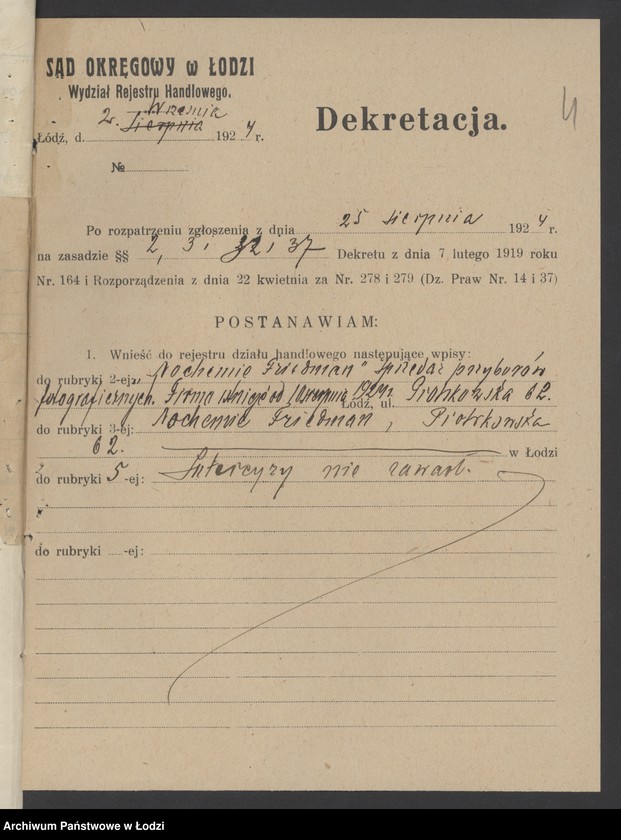 SĄD OKRĘGOWY w ŁODZI
Wydział Rejestru Handlowego.
Września
Łódź, d. 2. Sierpnia 1924 r.
Dekretacja.
4
№
Po rozpatrzeniu zgłoszenia z dnia 25 sierpnia 1924 r.
na zasadzie §§ 2, 3, 32, 37 Dekretu z dnia 7 lutego 1919 roku
Nr. 164 i Rozporządzenia z dnia 22 kwietnia za Nr. 278 i 279 (Dz. Praw Nr. 14 i 37)
POSTANAWIAM:
1. Wnieść do rejestru działu handlowego następujące wpisy:
do rubryki 2-ej: „Nochemie Friedman" sprzedaż przyborów
fotograficznych. Firma istnieje od 1 sierpnia 1924 r. Łódź, ul. Piotrkowska 62.
do rubryki 3-ej: Nochemie Friedman, Piotrkowska
62. w Łodzi
do rubryki 5-ej: Intercyzy nie zawarł.
do rubryki -ej:
Archiwum Państwowe w Łodzi